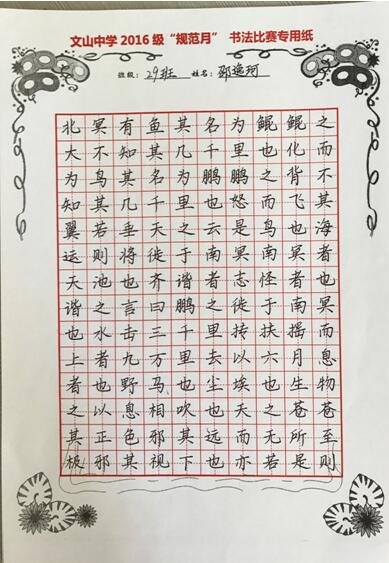 文山中学 2016 级“规范月” 书法比赛专用纸
班级：29班 姓名：邵逸珂
北冥有鱼其名为鲲鲲之
大不知其几千里也化而
为鸟其名为鹏鹏之背不
知其几千里也怒而飞其
翼若垂天之云是鸟也海
运则将徙于南冥南冥者
天池也齐谐者志怪者也
谐之言曰鹏之徙于南冥
也水击三千里抟扶摇而
上者九万里去以六月息
者也野马也尘埃也生物
之以息相吹也天之苍苍
其正色邪其远而无所至
极邪其视下也亦若是则